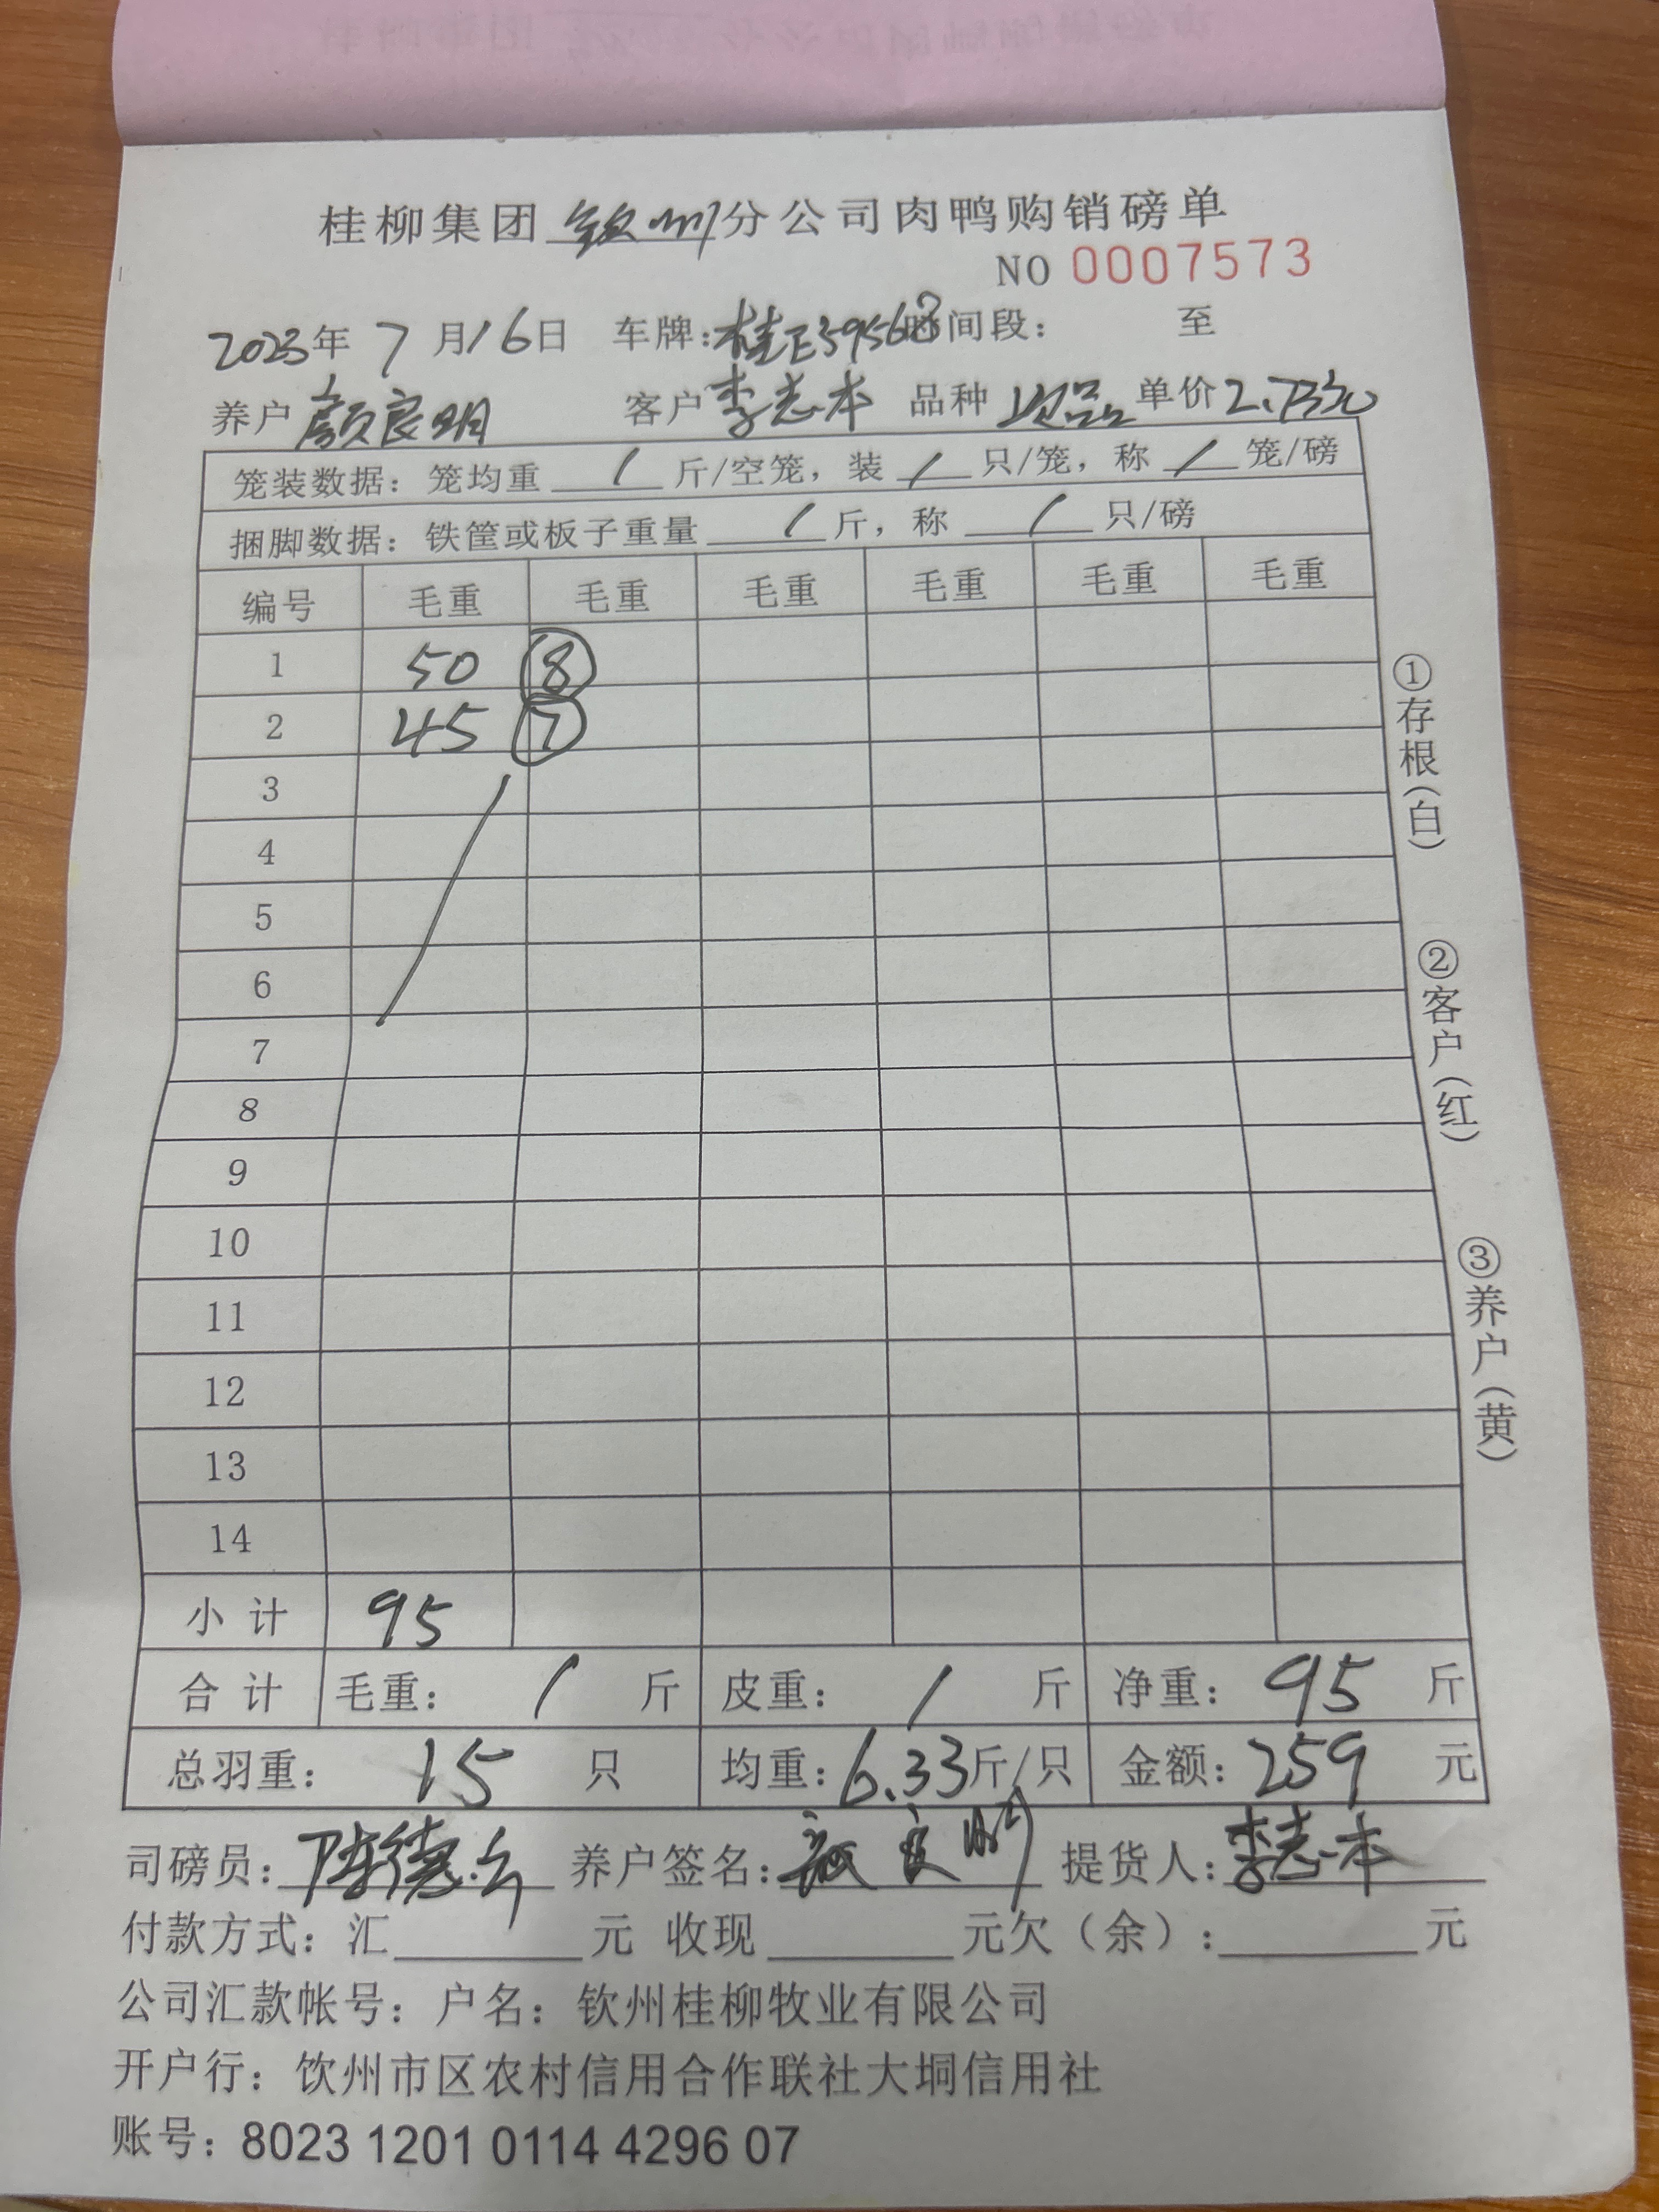 桂柳集团钦州分公司肉鸭购销磅单
NO 0007573
2023年7月16日 车牌:桂E39568时间段: 至
养户颜良明 客户李志本 品种次品 单价2.73元
笼装数据:笼均重/斤/空笼,装/只/笼,称/笼/磅
捆脚数据:铁筐或板子重量/斤,称/只/磅
编号 毛重 毛重 毛重 毛重 毛重 毛重
1 50 ⑧
2 45 ⑦
3
4
5
6
7
8
9
10
11
12
13
14
小计 95
合计 毛重: / 斤 皮重: / 斤 净重: 95 斤
总羽重: 15 只 均重: 6.33斤/只 金额: 259 元
司磅员:陈德 养户签名:颜良明 提货人:李志本
付款方式:汇______元 收现______元欠(余):______元
公司汇款帐号:户名:钦州桂柳牧业有限公司
开户行:饮州市区农村信用合作联社大垌信用社
账号:8023 1201 0114 4296 07
①存根(白)
②客户(红)
③养户(黄)